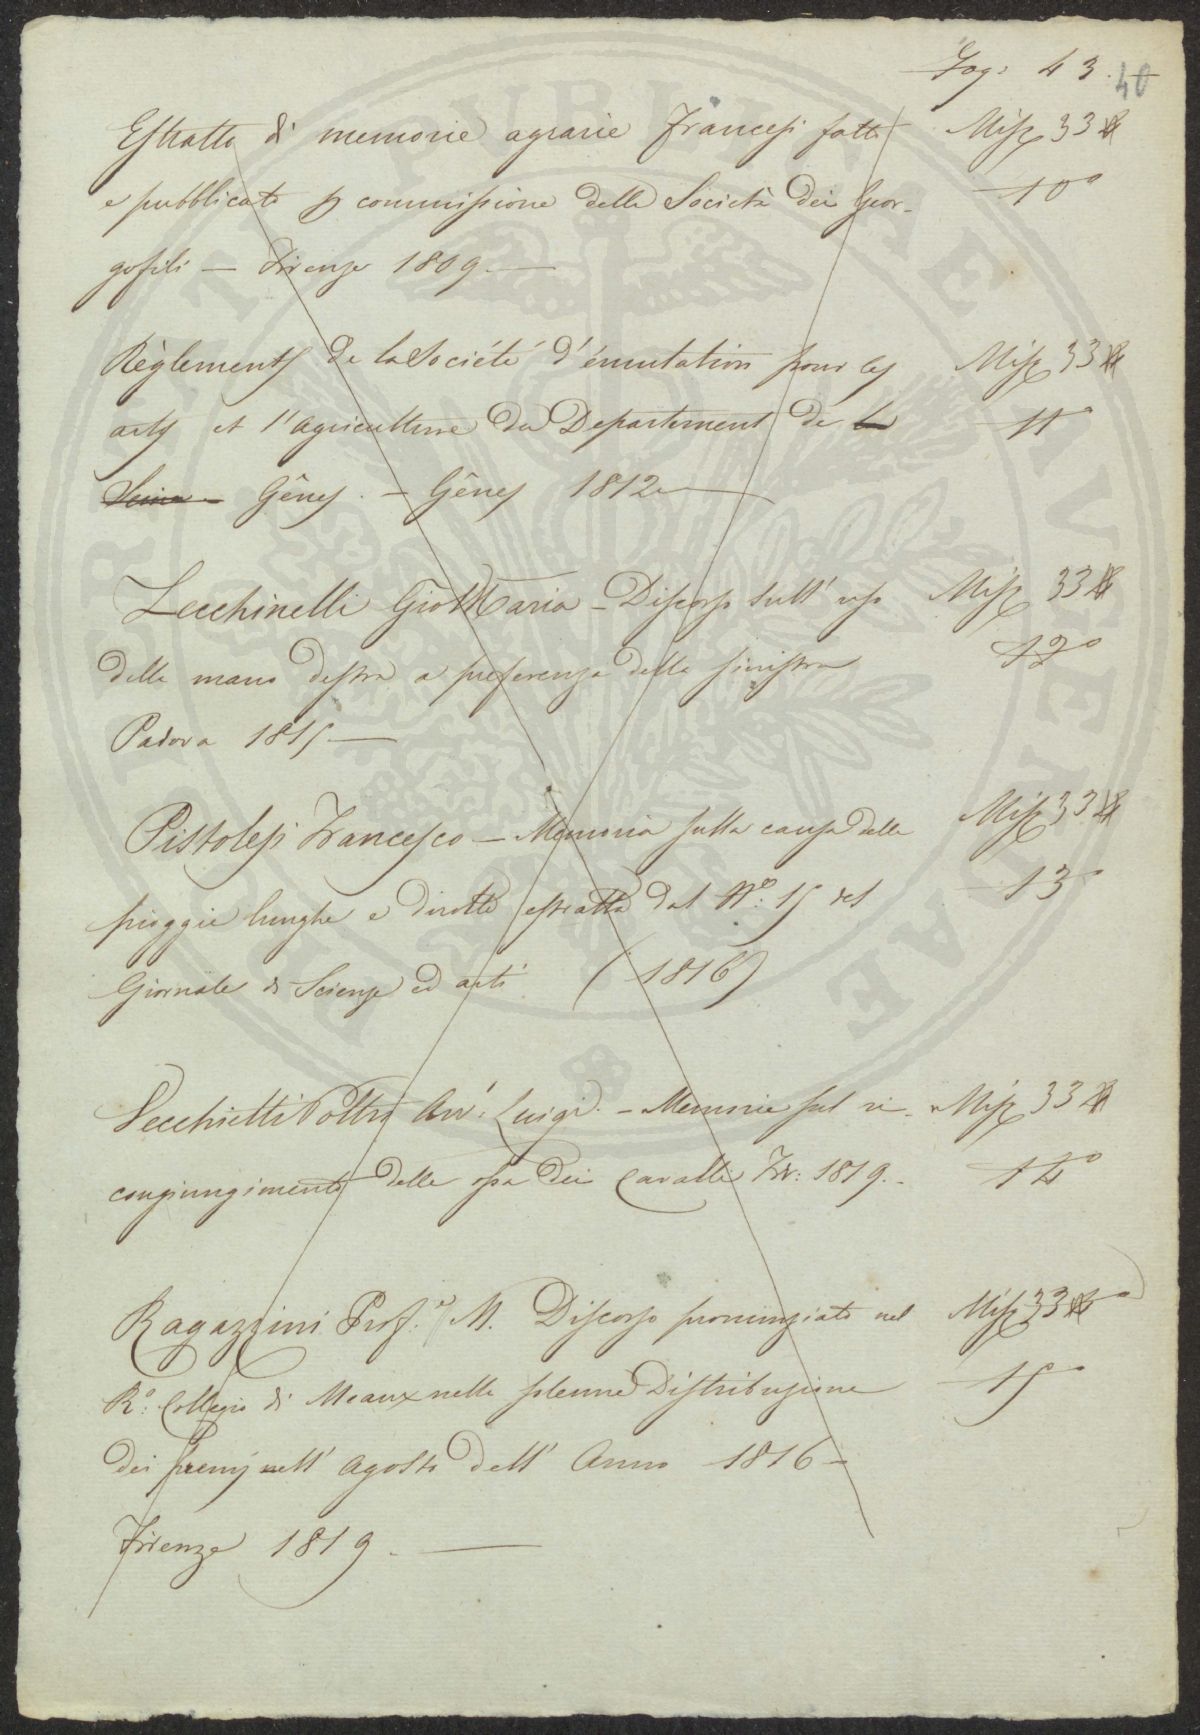 Fog: 43.
40
Estratto di memorie agrarie Francesi fatto Misc 33
e pubblicato p commissione della Società dei Geor- 10°
gofili — Firenze 1809. —
Règlements de la Société d'émulation pour les Misc 33
arts et l'agriculture du Departement de la 11°
Gênes. — Gênes 1812 —
Zecchinelli Gio Maria — Discorso sull' uso Misc 33
della mano destra a preferenza della sinistra 12°
Padova 1815 —
Pistolesi Francesco — Memoria sulla causa delle Misc 33
pioggie lunghe e dirotte estratta dal N°: 15 del 13°
Giornale di Scienze ed arti (1816)
Vecchietti Poltri Avv. Luigi. — Memorie sul ri- Misc 33
congiungimento delle ossa dei Cavalli Fir: 1819. - 14°
Ragazzini Prof.e M. Discorso pronunziato nel Misc 33
R°: Collegio di Meaux nella solenne Distribuzione 15°
dei premj nell' Agosto dell' Anno 1816 -
Firenze 1819. —
PUBLICAE
UTILITATI